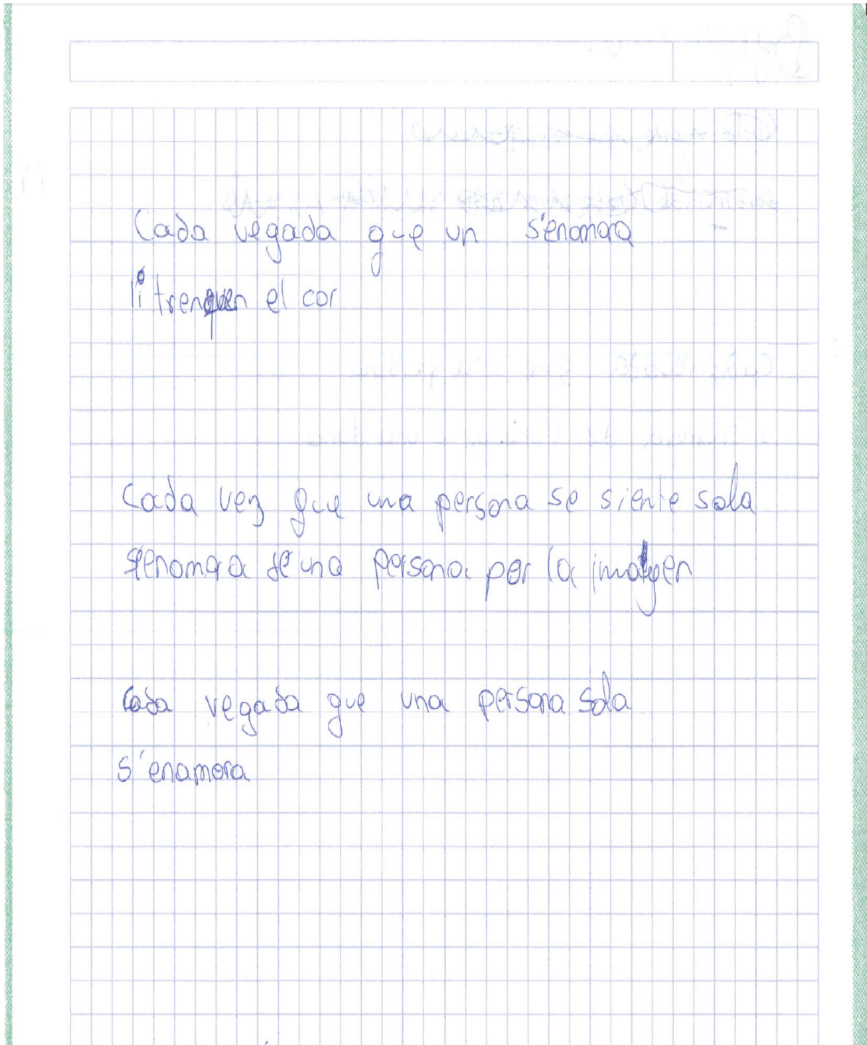 Cada vegada que un s'enamora
li trenquen el cor
Cada vez que una persona se siente sola
s'enamora de una persona per la imatgen
Cada vegada que una persona sola
s'enamora